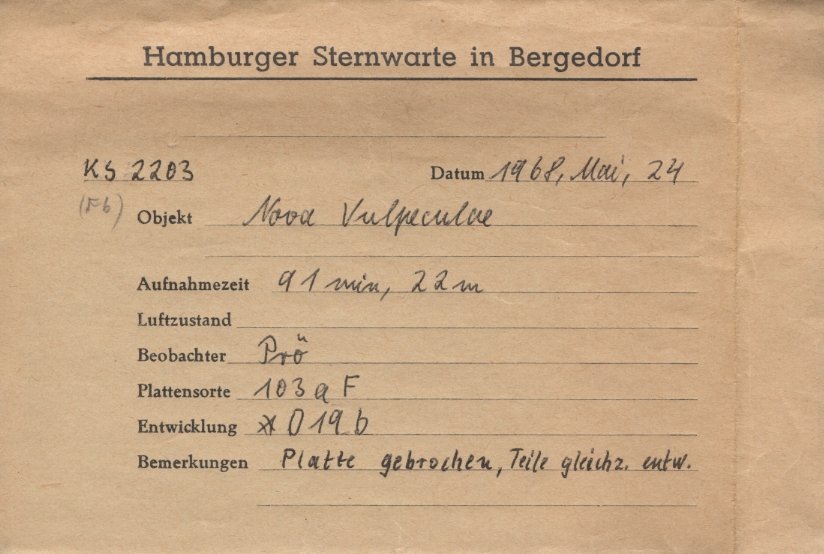 Hamburger Sternwarte in Bergedorf
KS 2203 Datum 1968, Mai, 24
(Fb)
Objekt Nova Vulpeculae
Aufnahmezeit 91 min, 22m
Luftzustand
Beobachter Prö
Plattensorte 103 a F
Entwicklung D 19 b
Bemerkungen Platte gebrochen, Teile gleichz. entw.